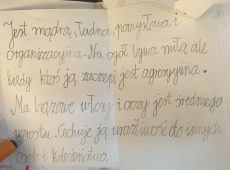 Jest mądra, ładna, pomysłowa i
organizacyjna. Na ogół bywa miła, ale
kiedy ktoś ją zaczepi jest agresywna.
Ma brązowe włosy i oczy jest średniego
wzrostu. Cechuje ją wrażliwość do innych
osób i koleżeństwo.